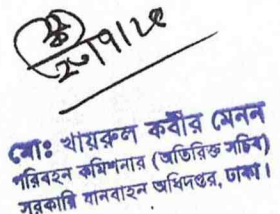 ২০/৭/২৫
মোঃ খায়রুল কবীর মেনন
পরিবহন কমিশনার (অতিরিক্ত সচিব)
সরকারি যানবাহন অধিদপ্তর, ঢাকা।